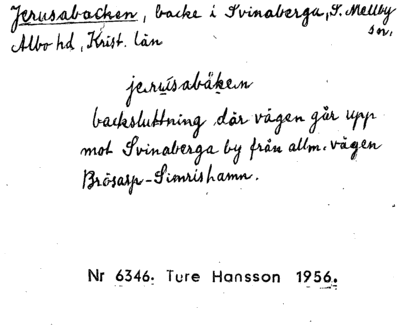 Jerusabacken, backe i Svinaberga, S. Mellby
sn,
Albo hd, Krist. län
jerusabåken
backsluttning där vägen går upp
mot Svinaberga by från allm. vägen
Brösarp-Simrishamn.
Nr 6346. Ture Hansson 1956.